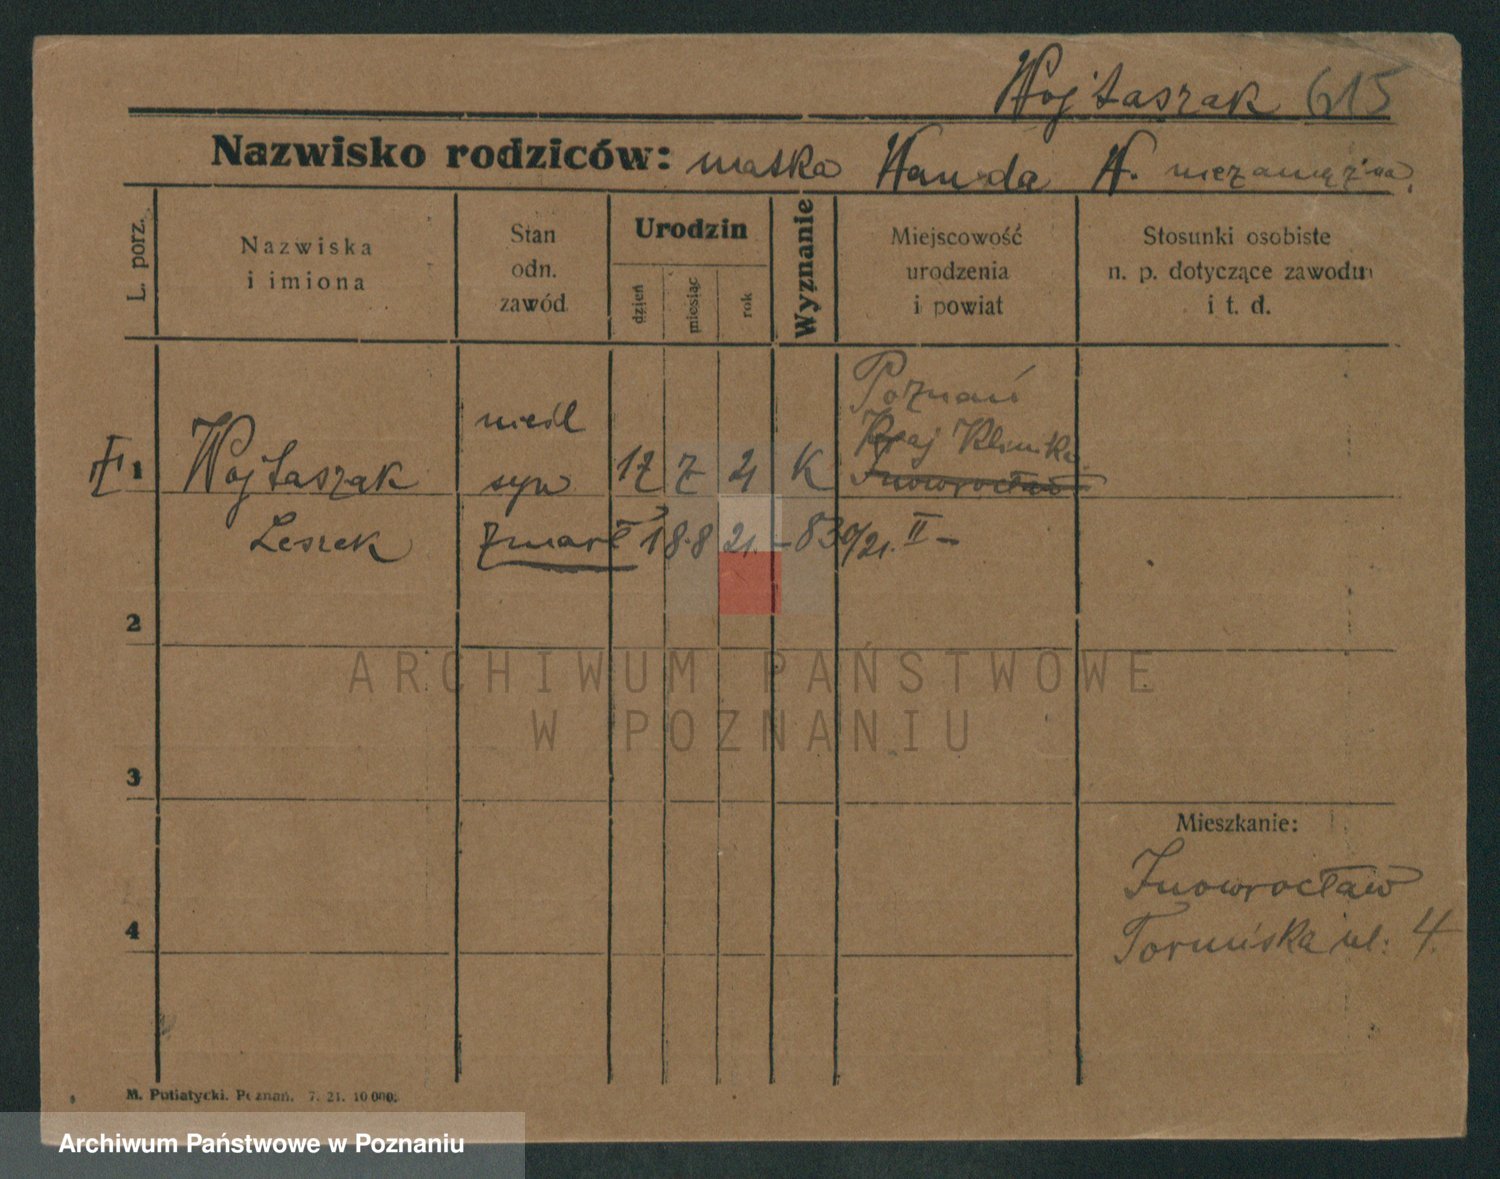 Wojtaszak 615
Nazwisko rodziców: matka Wanda W. niezamężna.
L. porz.
Nazwiska
i imiona
Stan
odn.
zawód
Urodzin
dzień
miesiąc
rok
Wyznanie
Miejscowość
urodzenia
i powiat
Stosunki osobiste
n. p. dotyczące zawodu
i t. d.
Poznań
Kraj Klinika
Inowrocław
1 Wojtaszak syn 17 7 21 K
Leszek zmarł 18.8 21. – 830/21. II –
2
3
4
Mieszkanie:
Inowrocław
Toruńska ul: 4.
M. Putiatycki. Poznań. 7. 21. 10 000.
ARCHIWUM PAŃSTWOWE
W POZNANIU
Archiwum Państwowe w Poznaniu